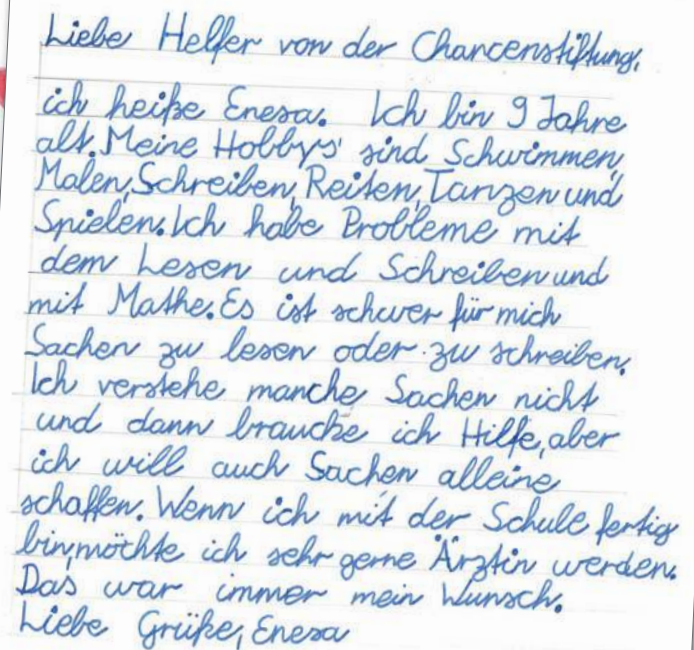 Liebe Helfer von der Chancenstiftung,
ich heiße Enesa. Ich bin 9 Jahre
alt. Meine Hobbys' sind Schwimmen,
Malen, Schreiben, Reiten, Tanzen und
Spielen. Ich habe Probleme mit
dem Lesen und Schreiben und
mit Mathe. Es ist schwer für mich
Sachen zu lesen oder zu schreiben.
Ich verstehe manche Sachen nicht
und dann brauche ich Hilfe, aber
ich will auch Sachen alleine
schaffen. Wenn ich mit der Schule fertig
bin, möchte ich sehr gerne Ärztin werden.
Das war immer mein Wunsch.
Liebe Grüße, Enesa